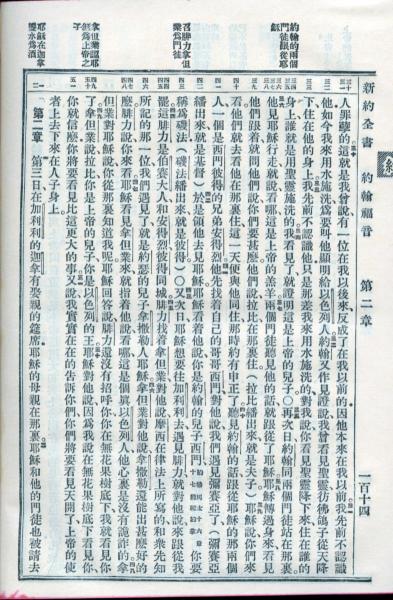 新約全書 約翰福音 第二章 一百十四
約翰的兩個
門徒跟從耶
穌
召腓力拿但
業爲門徒
拿但業認耶
穌爲上帝之
子
耶穌在迦拿
變水爲酒
人罪孽的這就是我曾說有一位在我以後來反成了在我以前的因他本來在我以前我先前不認識
他如今我來用水施洗爲要叫他顯明給以色列人約翰又作見證說我曾看見聖靈彷彿鴿子從天降
下住在他的身上我先前不認識他只是那差我來用水施洗的對我說你看見聖靈降下來住在誰的
身上誰就是用聖靈施洗的我看見了就證明這是上帝的兒子〇再次日約翰同兩個門徒站在那裏
他見耶穌行走就說看哪這是上帝的羔羊兩個門徒聽見他的話就跟從了耶穌耶穌轉過身來看見
他們跟着就問他們說你們要甚麽他們說拉比在那裏住（拉比繙出來就是夫子）耶穌說你們來
看他們就去看他在那裏住這一天便與他同住那時約有申正了聽見約翰的話跟從耶穌的那兩個
人一個是西門彼得的兄弟安得烈他先找着自己的哥哥西門對他說我們遇見彌賽亞了（彌賽亞
繙出來就是基督）於是領他去見耶穌耶穌看着他說你是約翰的兒子西門（約翰馬太十六章十七節稱約拿）你要
稱爲磯法（磯法繙出來就是彼得）〇又次日耶穌想要往加利利去遇見腓力就對他說來跟從我
罷這腓力是伯賽大人和安得烈彼得同城腓力找着拿但業對他說摩西在律法上所寫的和衆先知
所記的那一位我們遇見了就是約瑟的兒子拿撒勒人耶穌拿但業對他說拿撒勒還能出甚麽好的
麽腓力說你來看耶穌看見拿但業來就指着他說看哪這是個眞以色列人他心裏是沒有詭詐的拿
但業對耶穌說你從那裏知道我呢耶穌回答說腓力還沒有招呼你你在無花果樹底下我就看見你
了拿但業說拉比你是上帝的兒子你是以色列的王耶穌對他說因爲我說在無花果樹底下看見你
你就信麽你將要看見比這更大的事又說我實實在在的告訴你們你們將要看見天開了上帝的使
者上去下來在人子身上
第二章 第三日在加利利的迦拿有娶親的筵席耶穌的母親在那裏耶穌和他的門徒也被請去